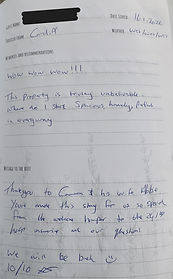 GUEST NAME
DATE STAYED 16.1.2026
TRAVELLED FROM Cardiff
WEATHER wet/wet/wet
REMARKS AND RECOMMENDATIONS
WOW WOW WOW!!!
This property is truly unbelievable
where do I start Spacious, homely, Perfect
in everyway.
MESSAGE TO THE HOST
Thankyou to & his wife
You've made this stay for us so special
from the welcome hamper to the
help answering all our questions
We will be back
10/10